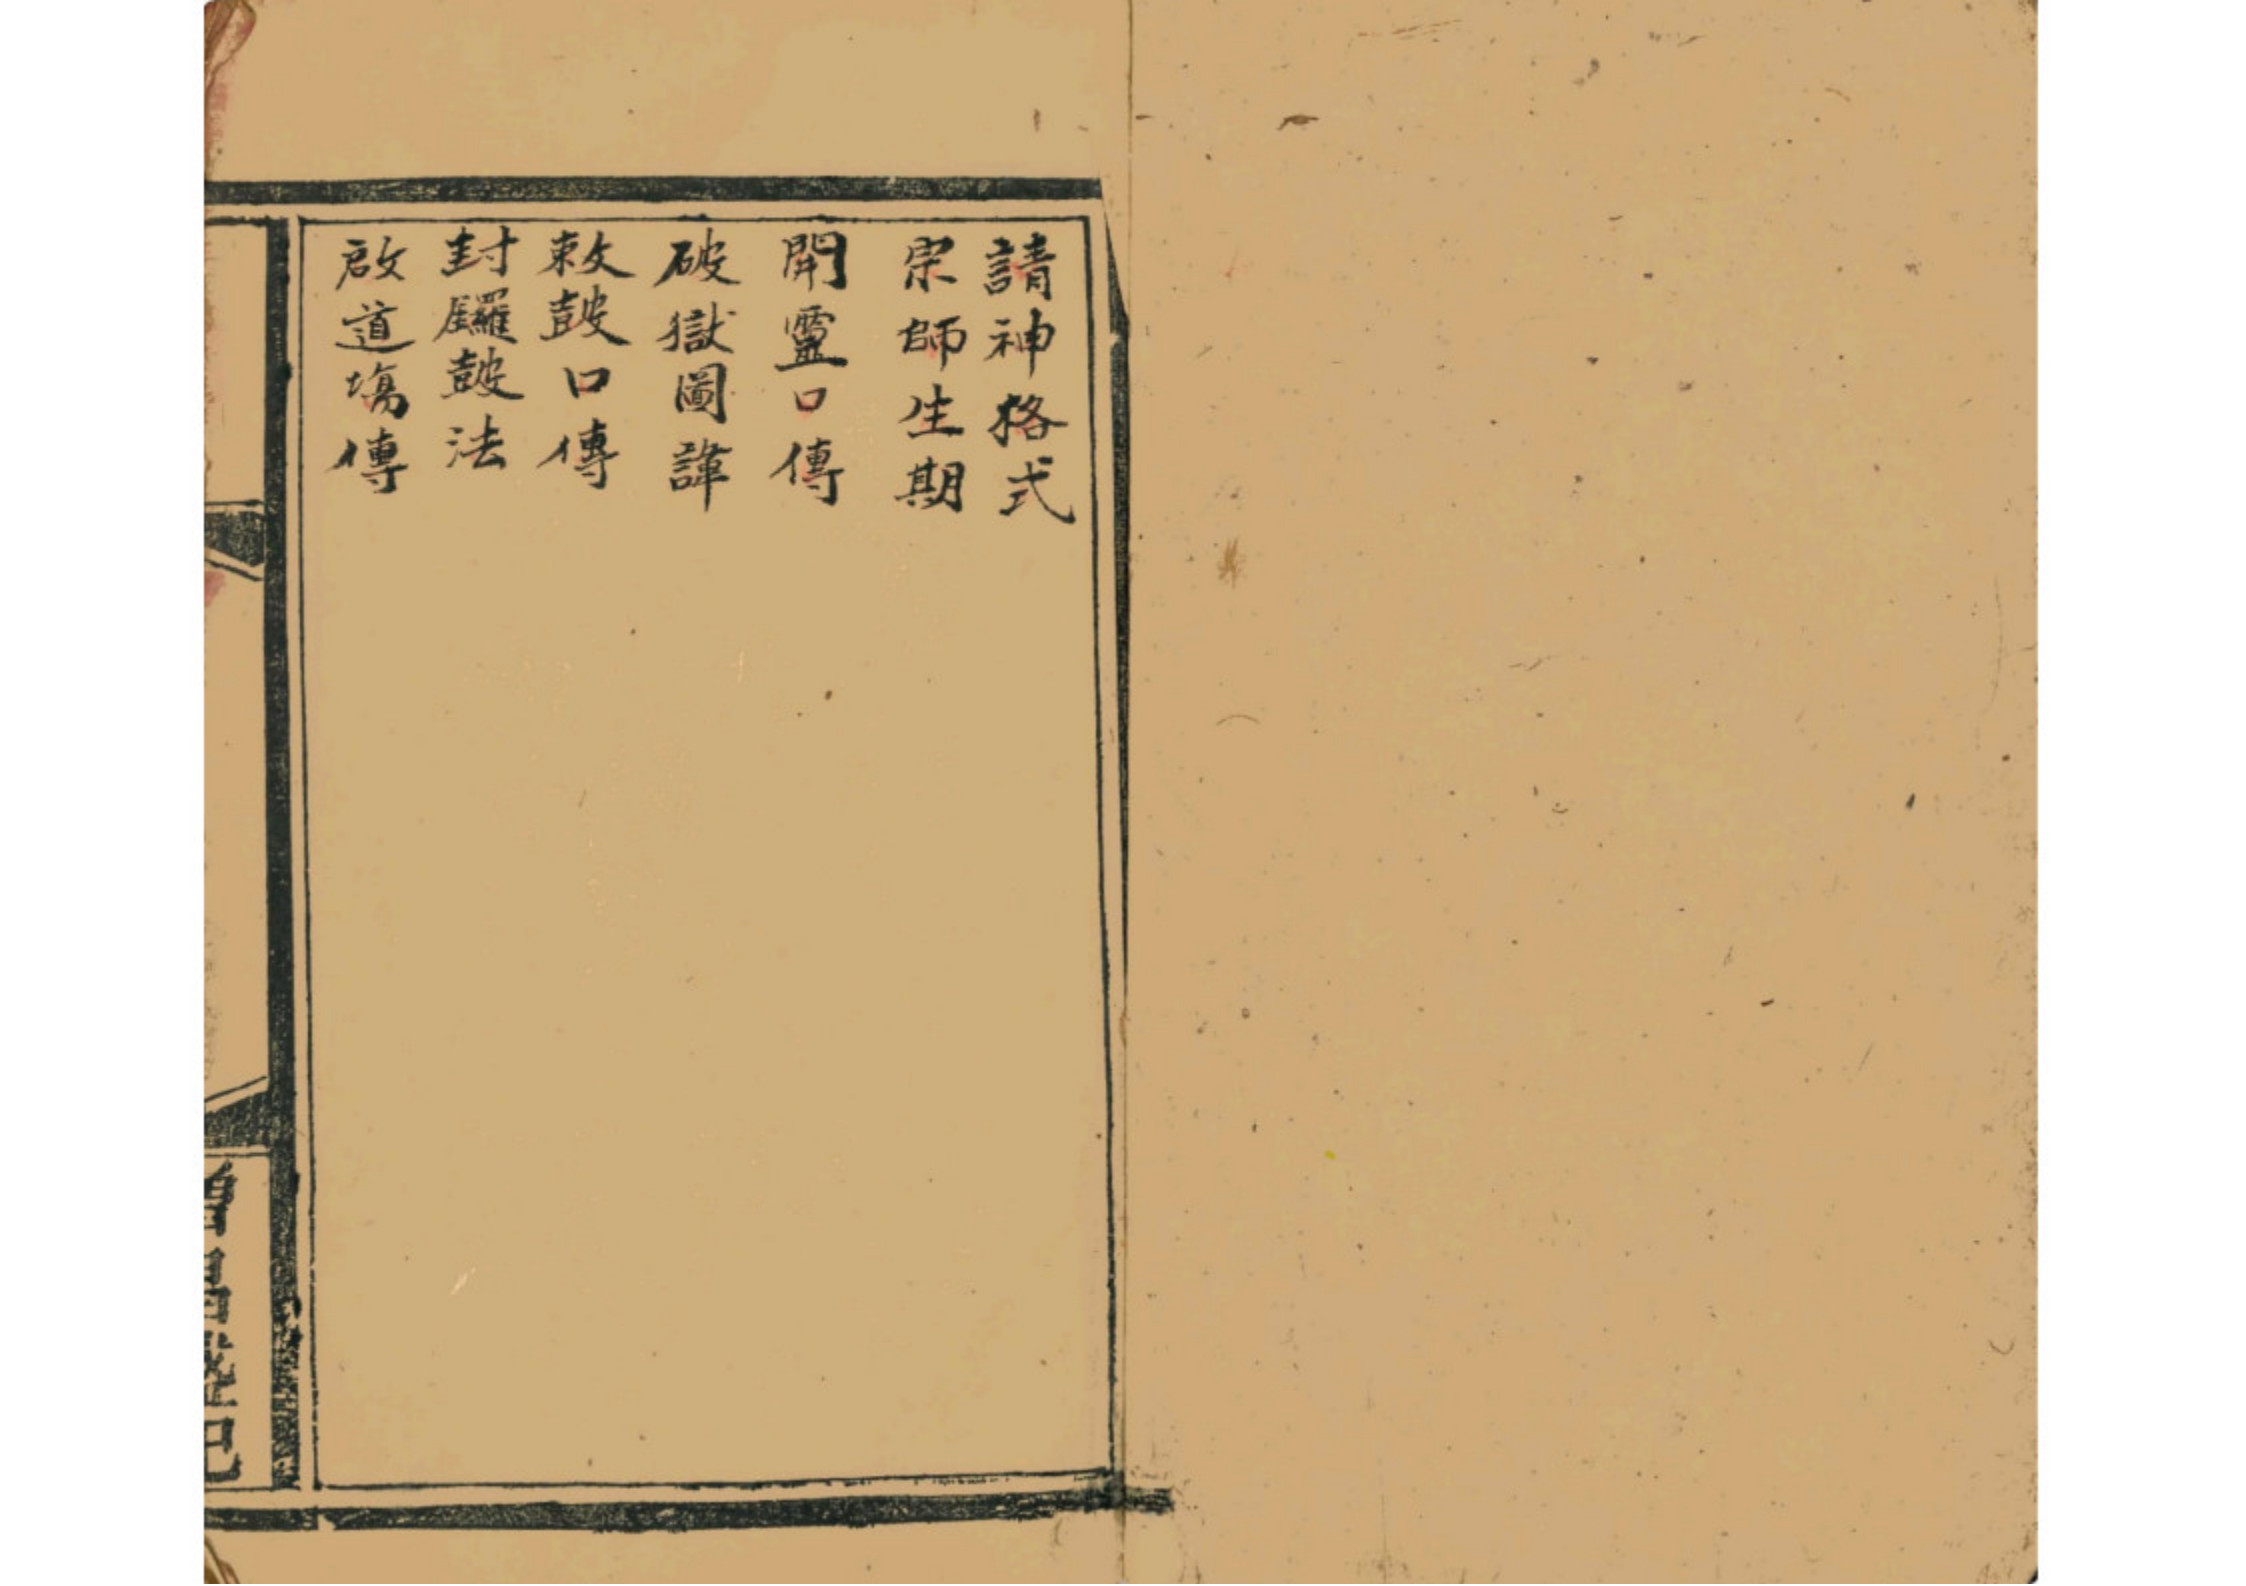 請神格式
宗師生期
開靈口傳
破獄圖諱
敕皷口傳
封鑼皷法
啟道場傳